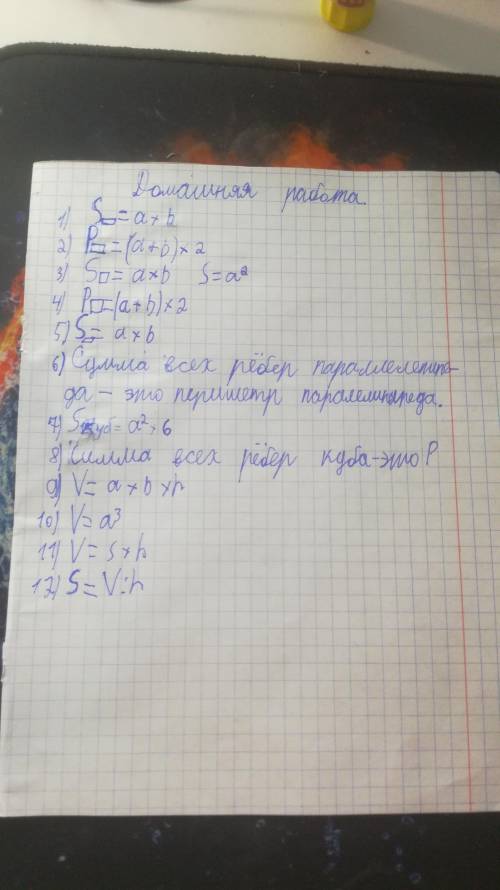 Домашняя работа.
1) S▭ = a × b
2) P▭ = (a + b) × 2
3) S□ = a × b S = a²
4) P□ = (a + b) × 2
5) S▭ = a × b
6) Сумма всех рёбер параллелепипе-
да - это периметр
7) Sкуб = a² × 6
8) Сумма всех рёбер куба - это P
9) V = a × b × h
10) V = a³
11) V = S × h
12) S = V : h